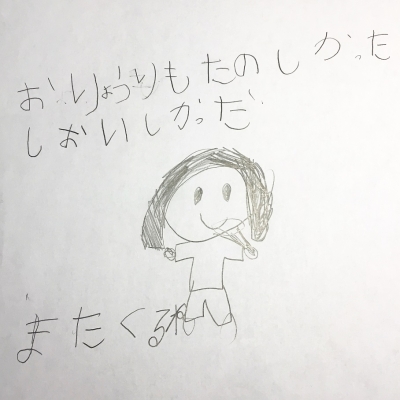 おりょうりもたのしかった
しおいしかっだ
またくるね